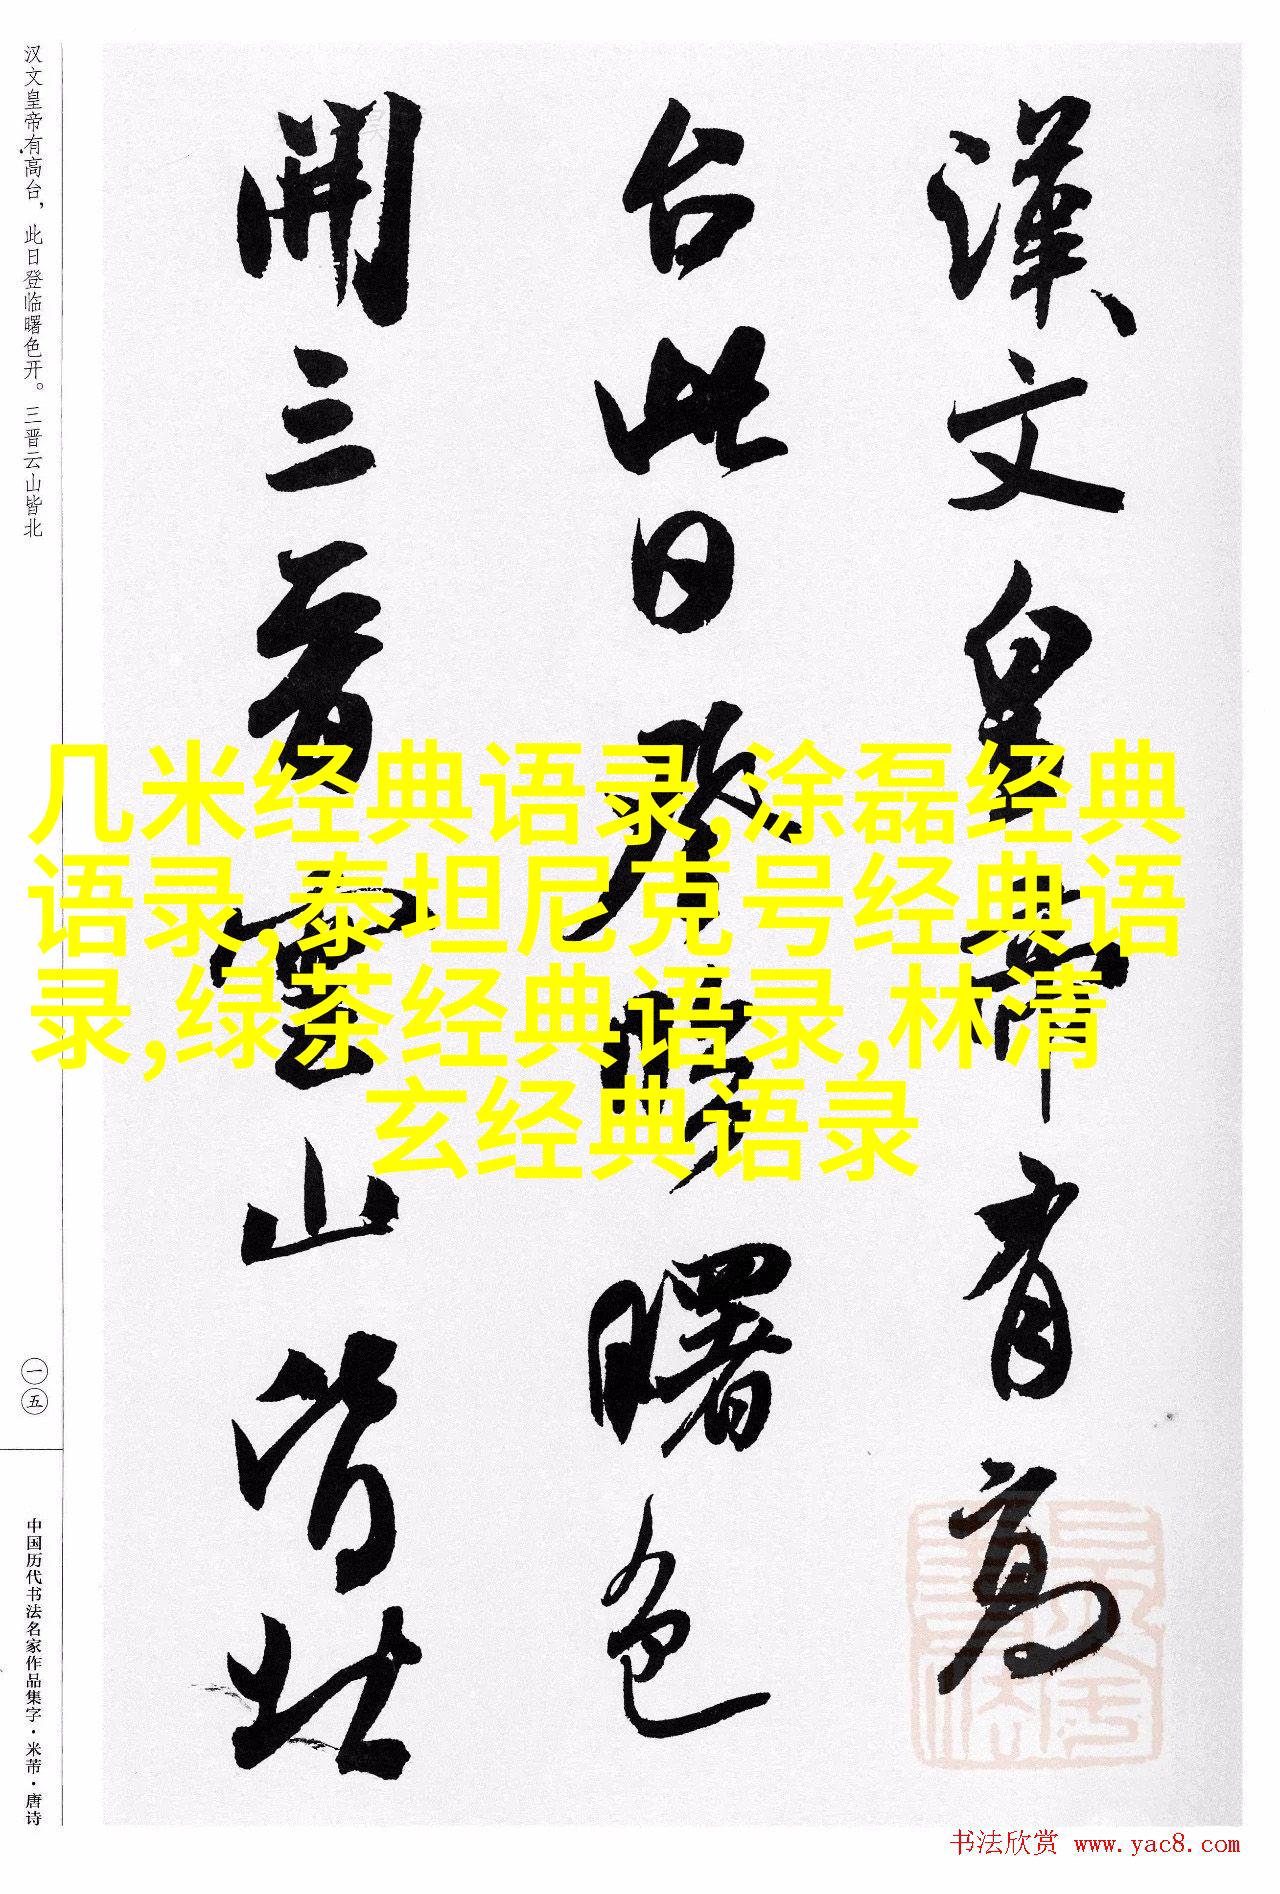 漢文皇帝有高
台此日登臨曙色
開三晋雲山皆北
汉文皇帝有高台，此日登临曙色开。三晋云山皆北
几米经典语录,涂磊经典
语录,泰坦尼克号经典语
录,绿茶经典语录,林清
玄经典语录
一五
中国历代书法名家作品集字·米芾·唐诗
书法欣赏 www.yac8.com